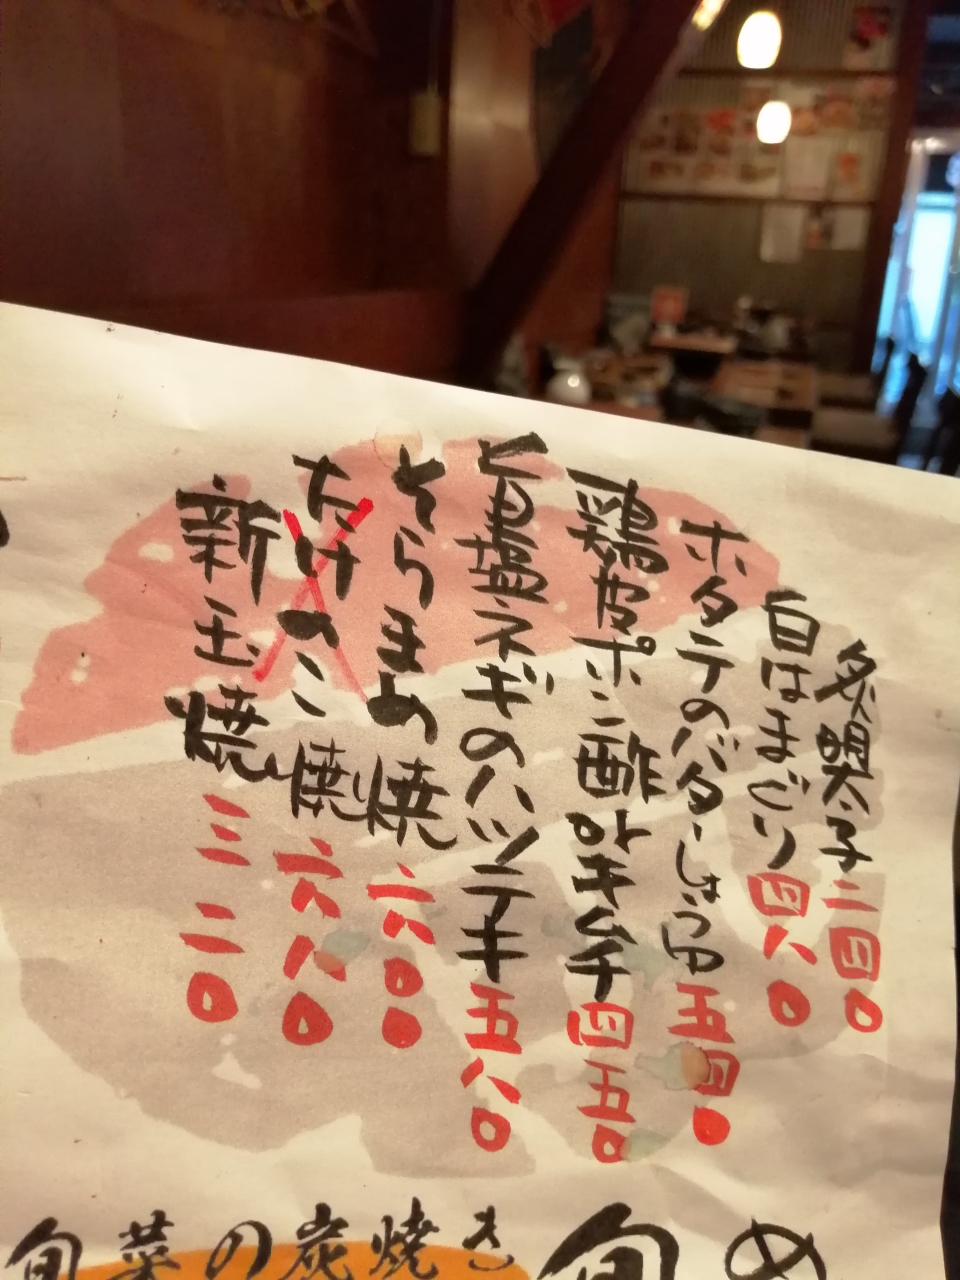 炙明太子二四〇
白はまぐり四八〇
ホタテのバターしょうゆ五四〇
鶏皮ポン酢orキムチ四五〇
旨塩ネギのハツテキ五八〇
そらまめ焼六〇〇
たけのこ焼六八〇
新玉焼三二〇
旬菜の炭焼き
旬
め